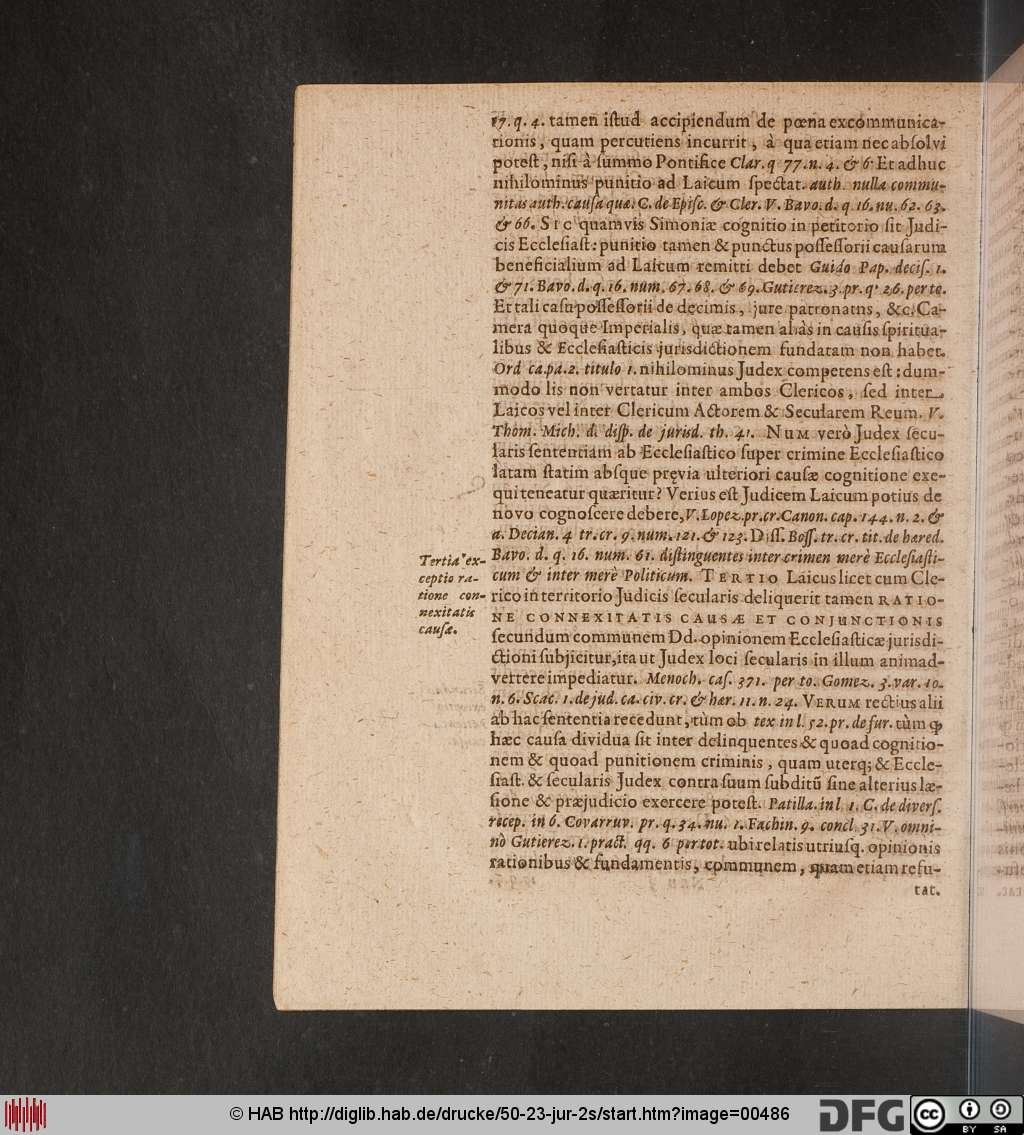 17. q. 4. tamen iſtud accipiendum de pœna excommunica-
tionis, quam percutiens incurrit, à qua etiam nec abſolvi
poteſt, niſi à ſummo Pontifice Clar. q 77. n. 4. & 6 Et adhuc
nihilominus punitio ad Laicum ſpectat. auth. nulla commu-
nitas auth. cauſa quæ. C. de Epiſc. & Cler. V. Bavo. d. q. 16. nu. 62. 63.
& 66. SIC quamvis Simoniæ cognitio in petitorio ſit Judi-
cis Eccleſiaſt: punitio tamen & punctus poſſeſſorii cauſarum
beneficialium ad Laicum remitti debet Guido Pap. deciſ. 1.
& 71. Bavo. d. q. 16. num. 67. 68. & 69. Gutierez. 3. pr. q. 26. per to.
Et tali caſu poſſeſſorii de decimis, jure patronatus, &c. Ca-
mera quoque Imperialis, quæ tamen aliàs in cauſis ſpiritua-
libus & Eccleſiaſticis jurisdictionem fundatam non habet.
Ord ca. pa. 2. titulo 1. nihilominus Judex competens eſt: dum-
modo lis non vertatur inter ambos Clericos, ſed inter
Laicos vel inter Clericum Actorem & Secularem Reum. V.
Thom. Mich. d. diſp. de jurisd. th. 41. NUM verò Judex ſecu-
laris ſententiam ab Eccleſiaſtico ſuper crimine Eccleſiaſtico
latam ſtatim absque pręvia ulteriori cauſæ cognitione exe-
qui teneatur quæritur? Verius eſt Judicem Laicum potius de
novo cognoſcere debere, V. Lopez. pr. cr. Canon. cap. 144. n. 2. &
a. Decian. 4 tr. cr. 9. num. 121. & 123. Diſſ. Boſſ. tr. cr. tit. de hæred.
Bavo. d. q. 16. num. 61. diſtinguentes inter crimen merè Eccleſiaſti-
cum & inter merè Politicum. TERTIO Laicus licet cum Cle-
rico in territorio Judicis ſecularis deliquerit tamen RATIO-
NE CONNEXITATIS CAUSÆ ET CONJUNCTIONIS
ſecundum communem Dd. opinionem Eccleſiaſticæ jurisdi-
ctioni ſubjicitur, ita ut Judex loci ſecularis in illum animad-
vertere impediatur. Menoch. caſ. 371. per to. Gomez. 3. var. 10.
n. 6. Scac. 1. de jud. ca. civ. cr. & hær. 11. n. 24. VERUM rectius alii
ab hac ſententia recedunt, tùm ob tex in l. 52. pr. de fur. tùm ꝙ
hæc cauſa dividua ſit inter delinquentes & quoad cognitio-
nem & quoad punitionem criminis, quam uterq; & Eccle-
ſiaſt. & ſecularis Judex contra ſuum ſubditũ ſine alterius læ-
ſione & præjudicio exercere poteſt. Patilla. in l 1. C. de diverſ.
recep. in 6. Covarruv. pr. q. 34. nu. 1. Fachin. 9. concl 31. V. omni-
nò Gutierez. 1. pract. qq. 6 per tot. ubi relatis utriuſq. opinionis
rationibus & fundamentis, communem, quam etiam refu-
tat.
Tertia ex-
ceptio ra-
tione con-
nexitatis
cauſæ.
© HAB http://diglib.hab.de/drucke/50-23-jur-2s/start.htm?image=00486
DFG
cc BY SA